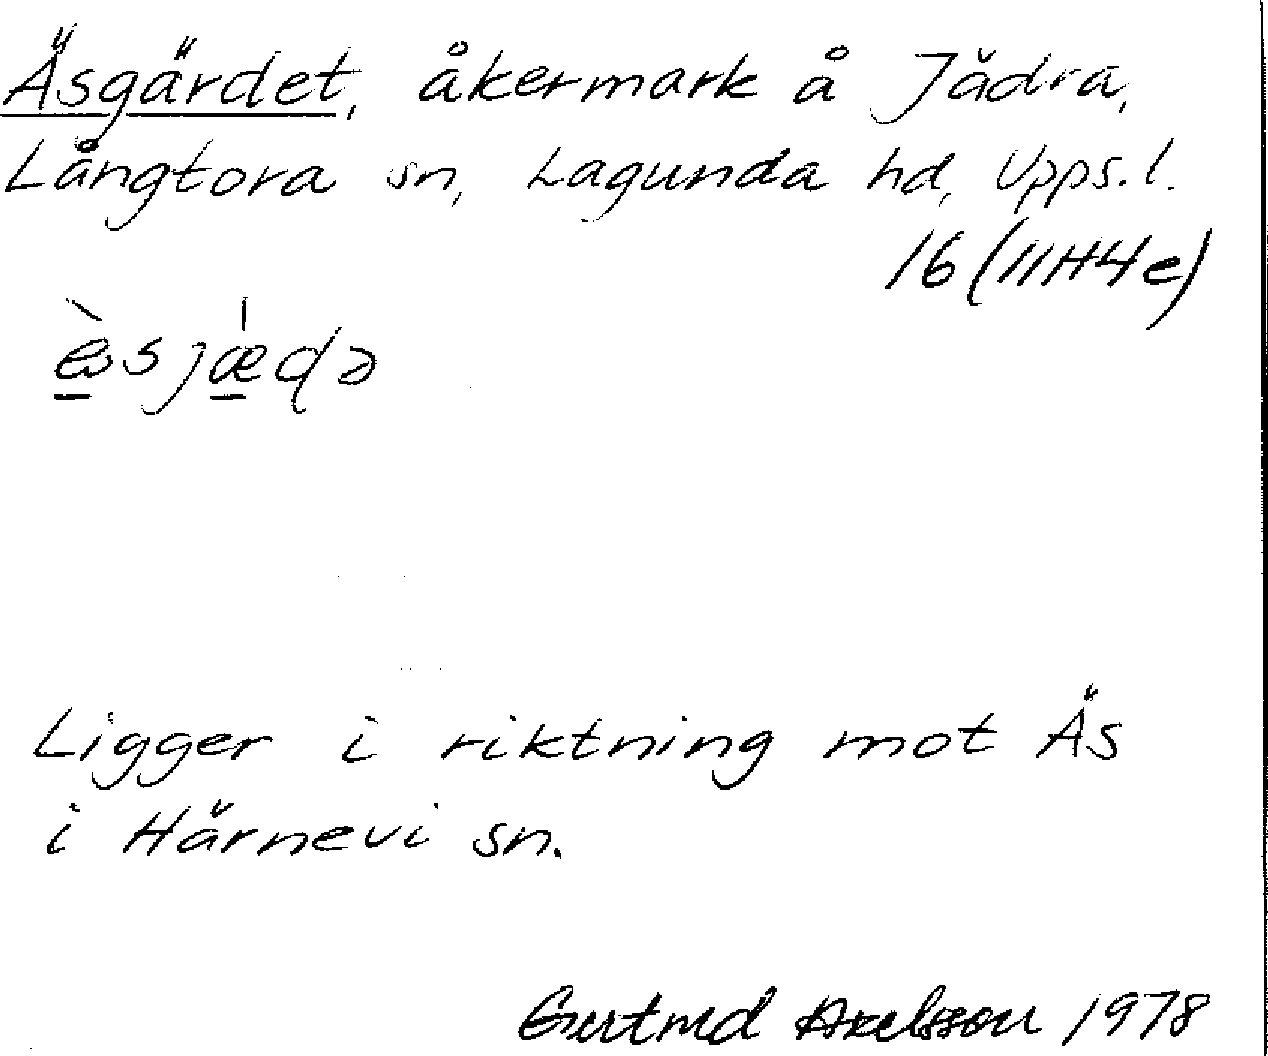 Äsgärdet, åkermark å Jädra,
Långtora sn, Lagunda hd, Upps. l.
16 (11H4e)
Ligger i riktning mot Äs
i Härnevi sn.
Gertrud Axelsson 1978